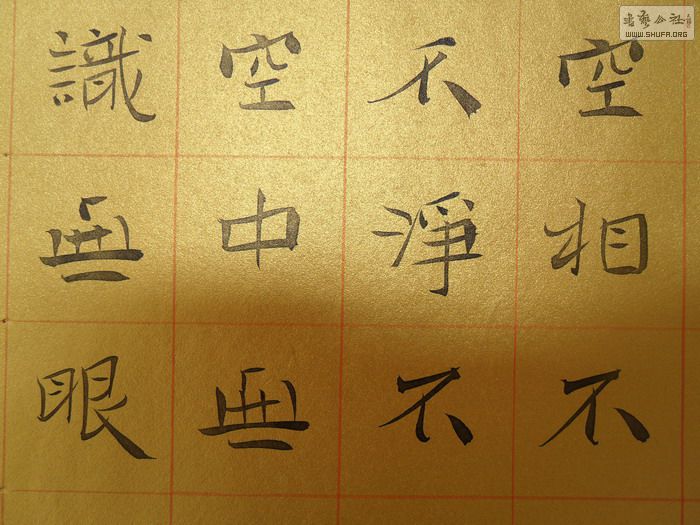 空相不
不淨不
空中無
識無眼
書藝公社
WWW.SHUFA.ORG